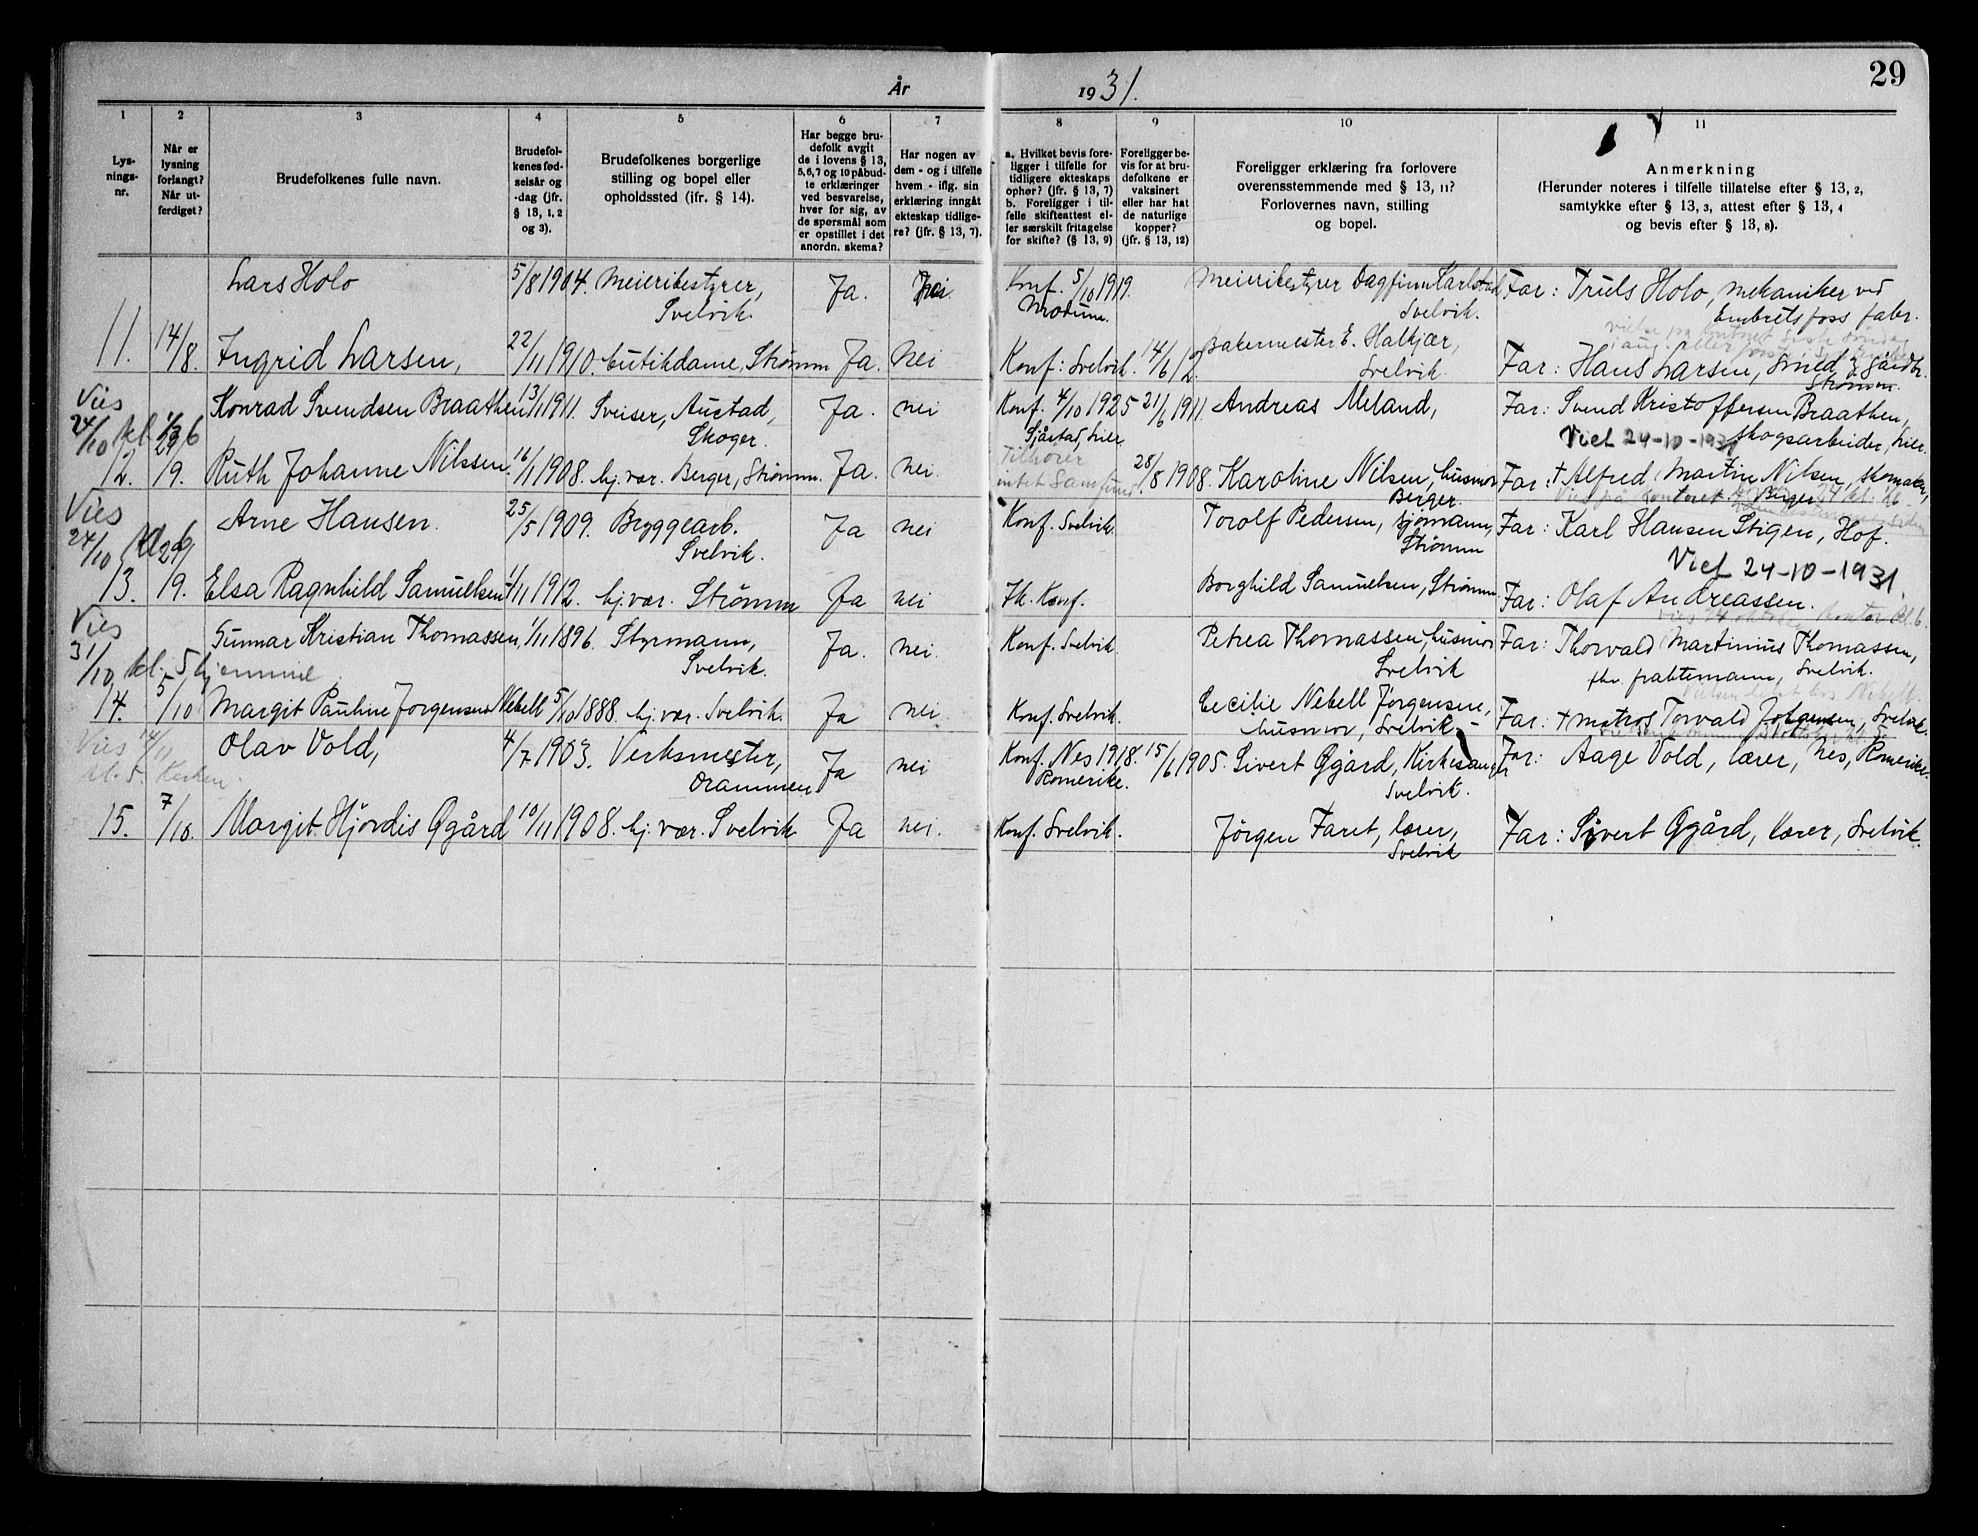 29
År 1931.
1 2 3 4 5 6 7 8 9 10 11
Lys-
nings-
nr.
Når er
lysning
forlangt?
Når ut-
ferdiget?
Brudefolkenes fulle navn.
Brudefol-
kenes fød-
selsår og
-dag (jfr.
§ 13, 1, 2
og 3).
Brudefolkenes borgerlige
stilling og bopel eller
opholdssted (ifr. § 14).
Har begge bru-
defolk avgit
de i lovens § 13,
5, 6, 7 og 10 påbud-
te erklæringer
ved besvarelse,
hver for sig, av
de spørsmål som
er opstillet i det
anordn. skema?
Har nogen av
dem - og i tilfelle
hvem - iflg. sin
erklæring inngått
ekteskap tidlige-
re? (jfr. § 13, 7).
a. Hvilket bevis fore-
ligger i tilfelle for
tidligere ekteskaps
ophør? (jfr. § 13, 7)
b. Foreligger i til-
felle skifteattest el-
ler særskilt fritagelse
for skifte? (§ 13, 9)
Foreligger be-
vis for at bru-
defolkene er
vaksinert
eller har hat
de naturlige
kopper?
(jfr. § 13, 12)
Foreligger erklæring fra forlovere
overensstemmende med § 13, 11?
Forlovernes navn, stilling
og bopel.
Anmerkning
(Herunder noteres i tilfelle tillatelse efter § 13, 2,
samtykke efter § 13, 3, attest efter § 13, 4
og bevis efter § 13, 8).
Lars Holo 5/8 1904. Meieribestyrer, Ja. Nei Konf. 5/10 1919. Meieribestyrer Dagfinn Karlstad Far: Truls Holo, mekaniker ved
Svelvik. Modum. Svelvik. Embretsfoss fabr.
11. 14/8. Ingrid Larsen, 22/11 1910. Butikdame, Strømm Ja. Nei Konf: Svelvik. 14/6 12. Bakermester E. Halkjær, Far: Hans Larsen, smed & gårdbr.
Svelvik. Strømm.
Vies Konrad Svendsen Braathen 13/11 1911. Sveiser, Austad, Ja. nei Konf. 4/10 1925 21/6 1911. Andreas Meland, Far: Svend Kristoffersen Braathen,
24/10 kl. 6 Skoger. Sjåstad, Lier Viet 24-10-1931 skogsarbeider, Lier.
12. 19. Ruth Johanne Nilssen 16/1 1908. hj. vær. Berger, Strømm. Ja. nei Tilhører
intet Samfund. 28/8 1908. Karoline Nilsen, husmor Far: + Alfred Martin Nilsen, skomaker,
Berger. Berger
Vies Arne Hansen. 25/5 1909. Bryggearb. Ja nei Konf. Svelvik. Torolf Pedersen, sjømann, Far: Karl Hansen Stigen, Hof.
24/10 Kl. 6 Svelvik. Strømm Viet 24-10-1931.
13. 19. Elsa Ragnhild Samuelsen 1/11 1912. hj. vær. Strømm Ja nei Th. Konf. Borghild Samuelsen, Strømm Far: Olaf Andreassen.
Vies Gunnar Kristian Thomassen, 1/11 1896. Styrmann, Ja. nei. Konf. Svelvik Petrea Thomassen, husmor Far: Thorvald Martinius Thomassen,
31/10 kl. 5 hjemme Svelvik. Svelvik fhv. fraktemann, Svelvik.
14. 5/10 Margit Pauline Jørgensen Nebell 5/10 1888. hj. vær. Svelvik. Ja nei. Konf. Svelvik. Cecilie Nebell Jørgensen, Far: + matros Torvald Johansen, Svelvik.
husmor, Svelvik -
Vies 14/11 Olav Vold, 4/7 1903. Verksmester, Ja nei Konf. Nes 1918. 15/6 1905. Sivert Øgård, Kirkesanger Far: Aage Vold, lærer, Nes, Romerike.
kl. 5. Kirken. Drammen Romerike. Svelvik.
15. 7/10. Margit Hjørdis Øgård 10/11 1908. hj. vær. Svelvik Ja nei. Konf. Svelvik. Jørgen Faret, lærer, Far: Sivert Øgård, lærer, Svelvik.
Svelvik